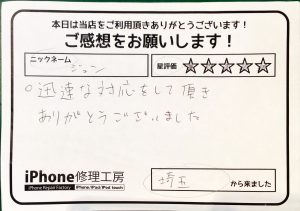 本日は当店をご利用頂きありがとうございます!
ご感想をお願いします!
ニックネーム
ジョン
星評価 ☆☆☆☆☆
○迅速な対応をして頂き
ありがとうございました
iPhone修理工房
iPhone Repair Factory iPhone/iPad/iPod touch
埼玉 から来ました